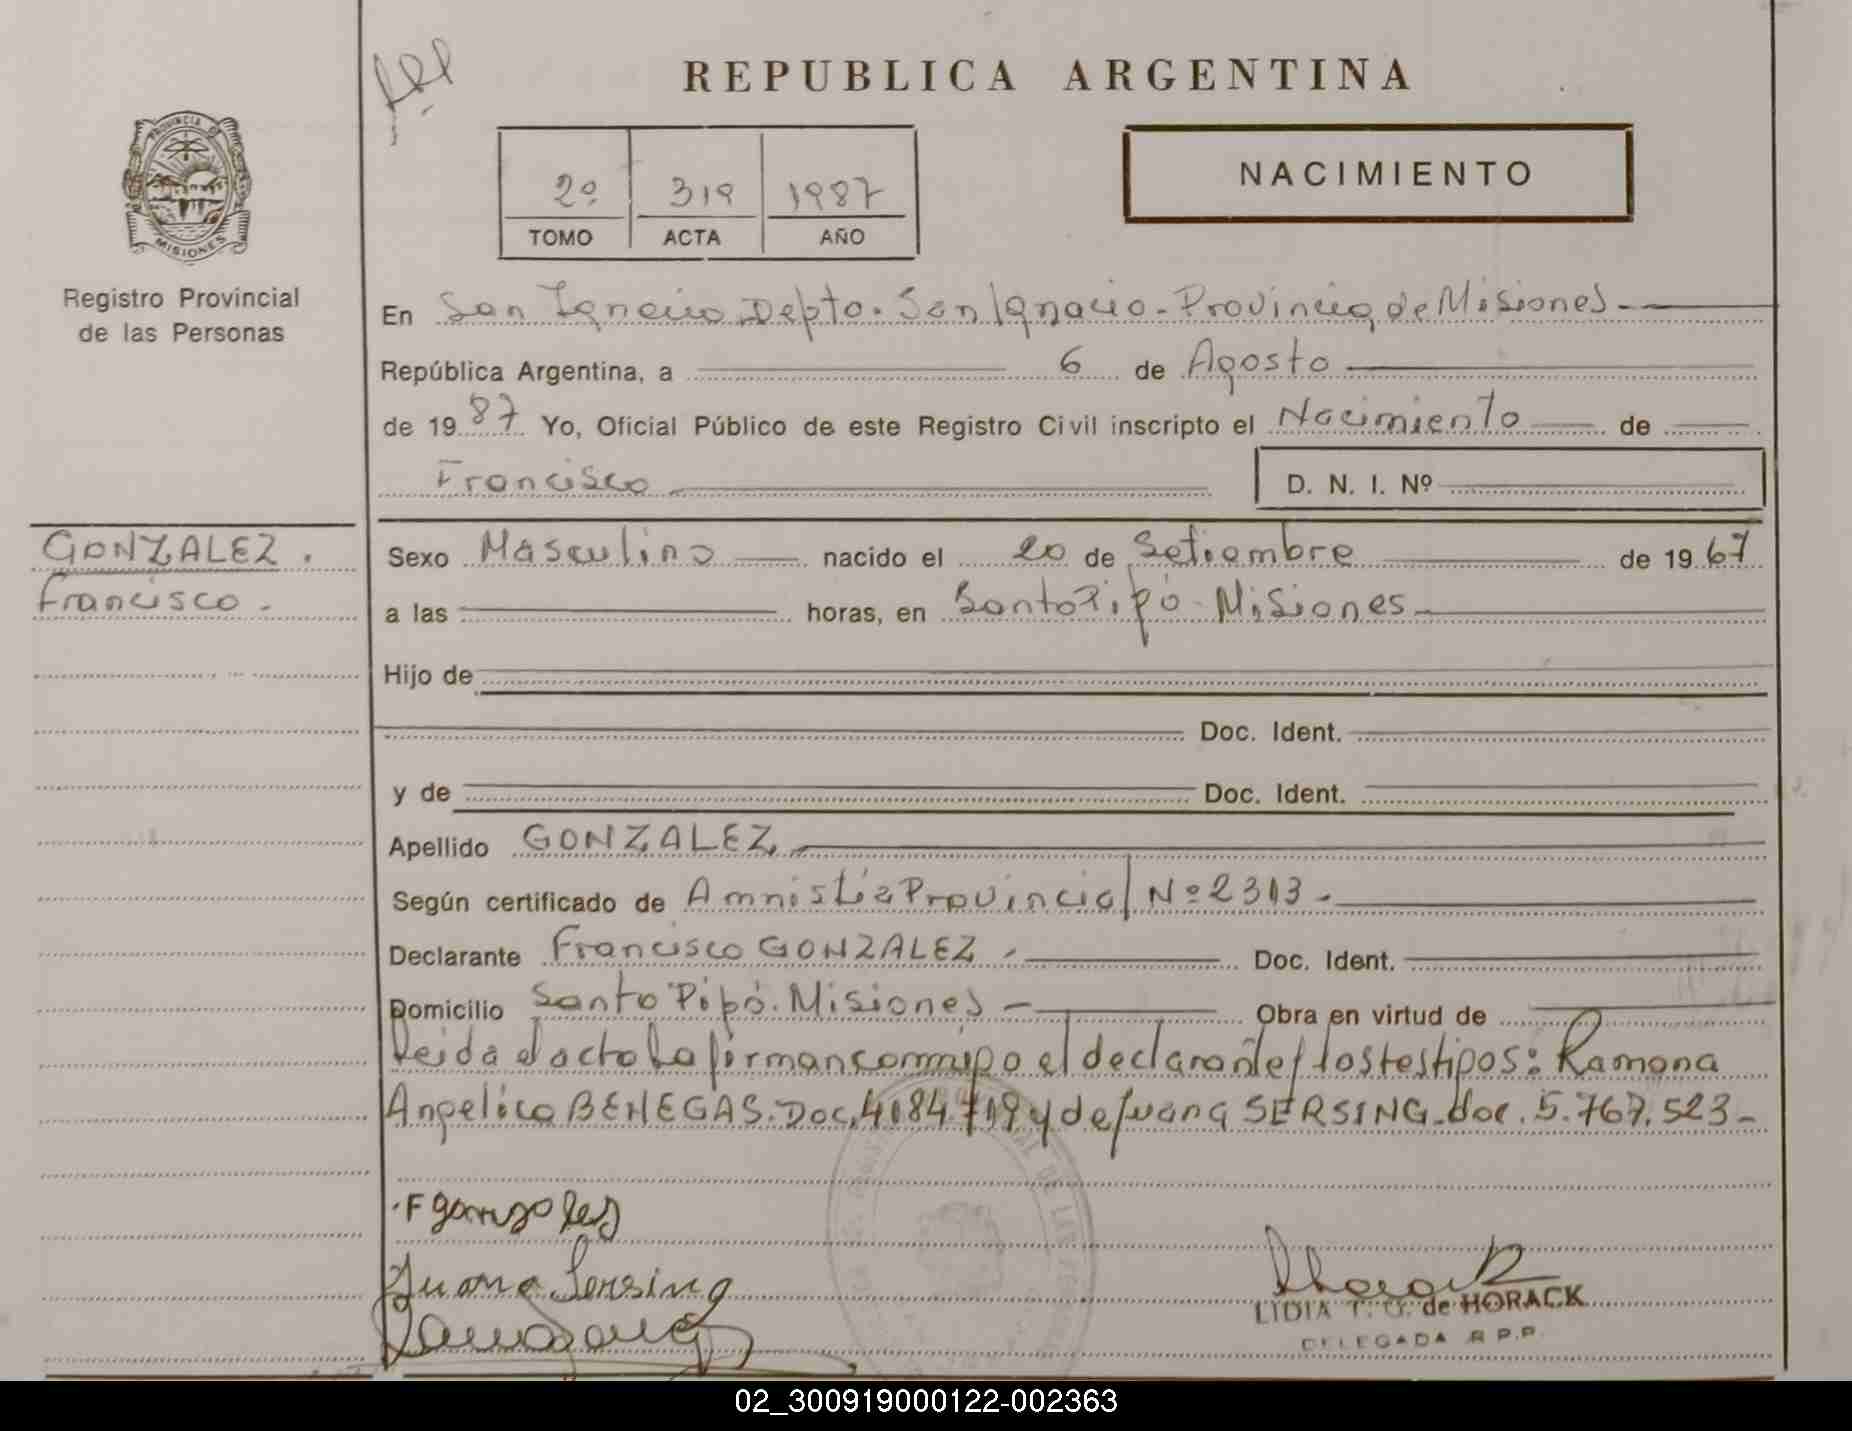 REPUBLICA ARGENTINA
PROVINCIA DE
MISIONES
Registro Provincial
de las Personas
2º 319 1987
TOMO ACTA AÑO
NACIMIENTO
En San Ignacio Depto. San Ignacio - Provincia de Misiones
República Argentina, a 6 de Agosto
de 1987 Yo, Oficial Público de este Registro Civil inscripto el Nacimiento de
Francisco D. N. I. Nº
GONZALEZ.
Francisco.
Sexo Masculino nacido el 20 de Setiembre de 1967
a las horas, en Santo Pipó - Misiones
Hijo de
Doc. Ident.
y de Doc. Ident.
Apellido GONZALEZ
Según certificado de Amnistía Provincial Nº 2313.
Declarante Francisco GONZALEZ. Doc. Ident.
Domicilio Santo Pipó. Misiones Obra en virtud de
Leida el acta la firman conmigo el declarante y los testigos: Ramona
Angelica BENEGAS. Doc. 4.184.719 y de Juana SERSING. doc. 5.767.523-
F gonzales
Juana Sersing
LIDIA T. G. de HORACK
DELEGADA R.P.P.
02_300919000122-002363